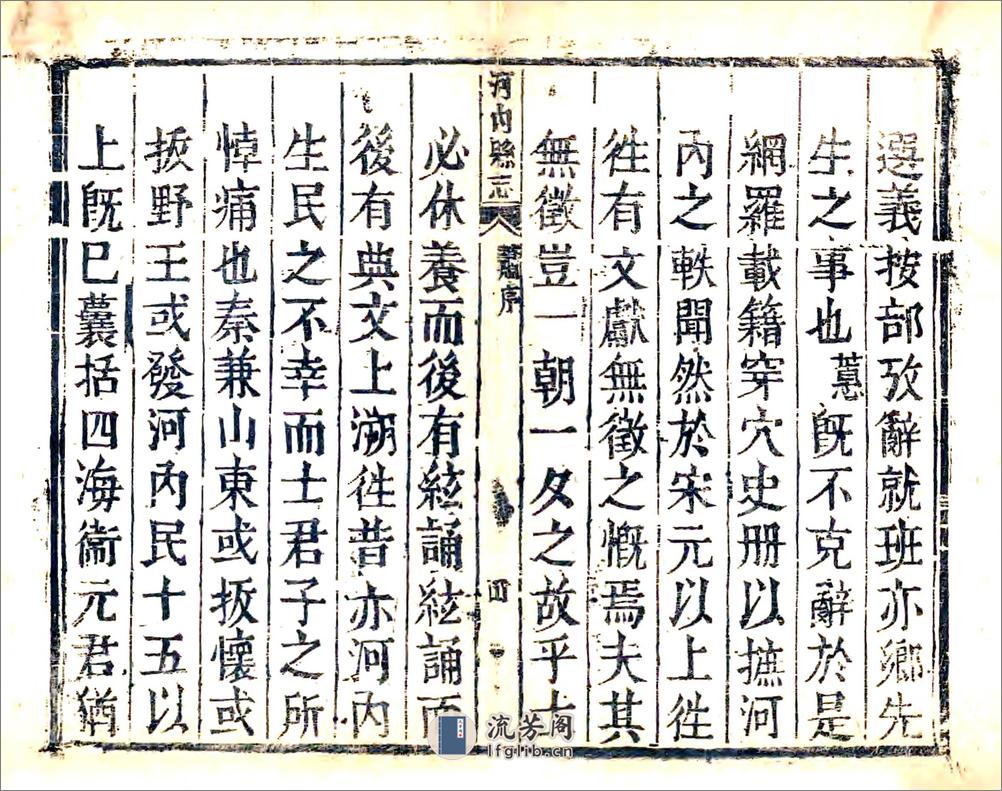 選義按部攷辭就班亦鄉先
生之事也蕙既不克辭於是
網羅載籍穿穴史冊以摭河
內之軼聞然於宋元以上徃
徃有文獻無徵之慨焉夫其
無徵豈一朝一夕之故乎士
河內縣志
蕭序
四
必休養而後有絃誦絃誦而
後有典文上溯徃昔亦河內
生民之不幸而士君子之所
悼痛也秦兼山東或扳懷或
扳野王或發河內民十五以
上既已囊括四海衞元君猶
流芳阁
lfglib.cn